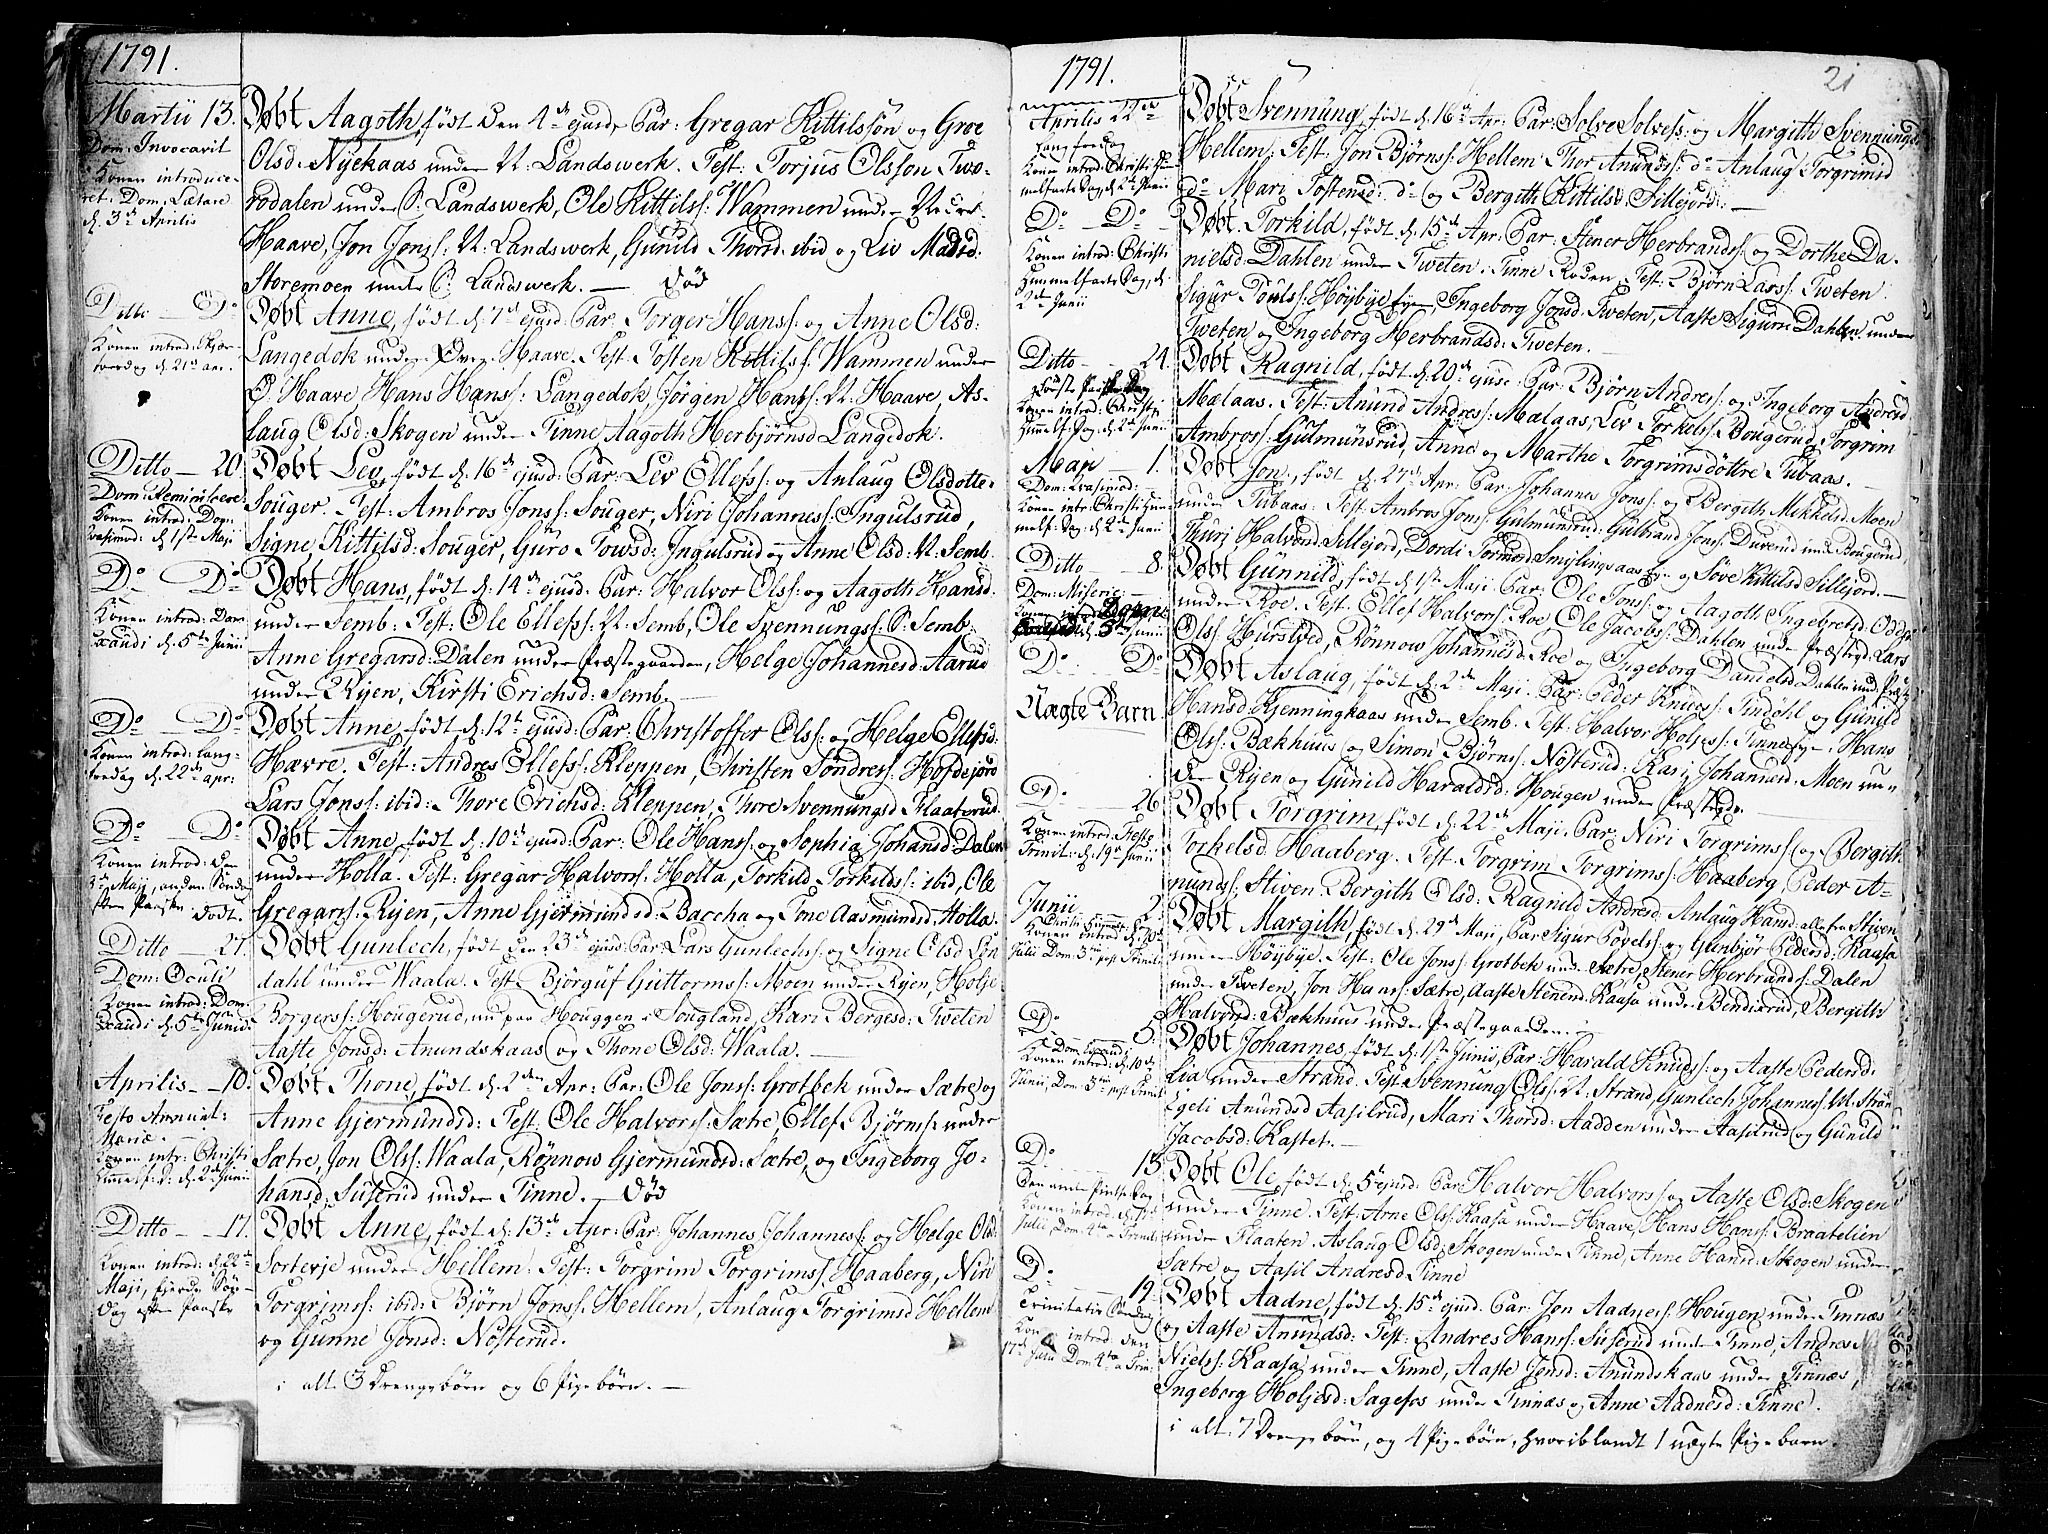 1791.
Martii 13.
Dom: Invocavit
Konen introduce-
ret. Dom: Lætare
d. 3de Aprilis
Døbt Aagoth, født den 4de ejusd: Par: Gregar Kittilssøn og Groe
Olsd: Nyekaas under N: Landswerk. Test: Torjus Olsson Two-
rodalen under S: Landswerk, Ole Kittilss: Wammen under Nedre-
Haave, Jon Jonss: N: Landswerk, Gunild Thorsd: ibid og Liv Madsd:
Storemoen under S: Landswerk. — død
Ditto — Do
Konen introd: Skjær-
torsdag d. 21de apr.
Døbt Anne, født d. 7de ejusd: Par: Torger Hanss: og Anne Olsd:
Langedok under Øvre Haave. Test: Tosten Kittilss: Wammen under
Ø: Haave Hans Hanss: Langedok, Jørgen Hanss: N: Haave, As-
laug Olsd: Skogen under Tinne Aagoth Herbjørnsd Langedok.
Ditto — 20.
Dom: Reminiscere
Konen introd: Dom:
Qvasimod: d. 1ste Maji
Døbt Lev, født d. 16de ejusd: Par: Lev Ellefss: og Anlaug Olsdotter
Souger. Test: Ambros Jonss: Souger, Niri Johanness: Ingulsrud,
Signe Kittilsd: Souger, Guro Towsd: Ingulsrud og Anne Olsd: N: Semb.
Do — Do
Konen introd: Dom:
Exaudi d. 5te Junii
Døbt Hans, født d. 14de ejusd: Par: Halvor Olss: og Aagoth Hansd:
under Semb: Test: Ole Ellefss: N: Semb, Ole Svennungss: S: Semb,
Anne Gregarsd: Dalen under Præstegaarden, Helge Johannesd: Aarud
under Ryen, Kirsti Erichsd: Semb.
Do — Do
Konen introd: Lang-
fredag d. 22de apr:
Døbt Anne, født d. 12te ejusd: Par: Christoffer Olss: og Helge Ellefsd:
Hævre. Test: Andres Ellefss: Kleppen, Christen Søndress: Hofdejord
Lars Jonss: ibid: Thore Erichsd: Kleppen, Thore Svennungsd Flaaterud.
Do — Do
Konen introd: den
Maji, anden Sønd:
efter Paaske. død.
Døbt Anne, født d. 10de ejusd: Par: Ole Hanss: og Sophia Johansd: Dalen
under Holla. Test: Gregar Halvorss: Holla, Torkild Torkildss: ibid, Ole
Gregarss: Ryen, Anne Gjermundsd: Baccha og Tone Aasmundsd: Holla.
Ditto — 27.
Dom: Oculi
Konen introd: Dom:
Exaudi d. 5te Junii.
Døbt Gunlech, født den 23de ejusd: Par: Lars Gunlechss: og Signe Olsd Lin
dahl under Waala. Test: Bjørguf Guttormss: Moen under Ryen, Holje
Borgerss: Hougerud, nu paa Houggen i Sougland, Kari Bergesd: Tweten
Aaste Jonsd: Anundskaas og Thone Olsd: Waala.
Aprilis — 10.
Festo Annunt:
Mariæ.
Konen intr: Christi
Himmelf: D: d. 2de Junii
Døbt Thone, født d. 2den Apr: Par: Ole Jonss: Grotbek under Sætre og
Anne Gjermundsd: Test: Ole Halvorss: Sætre, Ellef Bjørnss: under
Sætre, Jon Olss: Waala, Rønnow Gjermundsd: Sætre, og Ingeborg Jo-
hansd: Suserud under Tinne. — død
Ditto — 17.
Konen introd: d. 22de
Maji, fjerde Søn-
dag efter Paaske
Døbt Anne, født d. 13de Apr: Par: Johannes Johanness: og Helge Olsd:
Sortevje under Hillem: Test: Torgrim Torgrimss: Haaberg, Niri
Torgrimss: ibid: Bjørn Jonss: Hellem, Anlaug Torgrimsd Hellem
og Gunne Jonsd: Nøsterud.
i alt 3 Drengebørn og 6 Pigebørn. —
1791.
21
Aprilis 22de
Langfredag
Konen introd: Christi Him
melfarts Dag, d. 2de Junii
Døbt Svennung, født d. 16de Apr: Par: Solve Solvess: og Margith Svennungsd
Hellem. Test: Jon Bjørnss: Hellem Thor Anundss: do Anlaug Torgrimsd
do Mari Tostensd: do og Bergith Kittilsd: Sillejord.
Do — Do
Konen introd: Christi
Himmelfarts Dag, d.
2de Junii
Døbt Torkild, født d. 15de Apr: Par: Stener Herbrandss: og Dorthe Da-
nielsd: Dahlen under Tweten i Tinne Roden. Test: Bjørn Larss: Tweten
Sigur Poulss: Høybye Ingeborg Jonsd: Tweten, Aaste Sigursd Dahlen under
Tweten og Ingeborg Herbrandsd: Tweten.
Ditto — 24.
Første Paaske Dag
Konen introd: Christi
Himmelf: Dag, d. 2de Junii
Døbt Ragnild, født d. 20de ejusd: Par: Bjørn Andress: og Ingeborg Andresd
Mælaas. Test: Anund Andress: Mælaas, Lev Torkelss: Bougerud, Torgrim
Ambross: Gulmunsrud, Anne og Marthe Torgrimsdøttre Tubaas.
Maji — 1.
Dom: Qvasimod:
Konen intr: Christi Him
melf: Dag, d. 2de Junii
Døbt Jon, født d. 27de Apr: Par: Johannes Jonss: og Bergith Mikkelsd: Moen
under Tubaas: Test: Ambros Jonss: Gulmunsrud, Gulbrand Jonss: Duverud under Bougerud
Thuri Halvorsd: Sillejord, Dordi Tormodsd Smislingsaas og Søve Kittilsd Sillejord.
Ditto — 8.
Dom: Miseric:
Konen introd: Dom:
d. 5te Junii
Døbt Gunnild, født d. 1ste Maji Par: Ole Jonss: og Aagoth Ingebretsd: Odden
under Roe. Test: Ellef Halvorss: Roe, Ole Jacobss: Dahlen under Præstegd: Lars
Olss: Hurstved, Rønnow Johannesd: Roe og Ingeborg Danielsd Dahlen und: Præste
Do — Do
Uægte Barn.
Døbt Aslaug, født d. 2de Maji. Par: Peder Knudss: Tindøhl og Gunild
Hansd: Kjenningkaas under Semb. Test: Halvor Holjess: Tinnefs Hans
Olss: Bækhuus og Simon Bjørnss: Nøsterud: Kari Johannesd: Moen un-
der Ryen og Gunild Haraldsd: Hougen under Præstegd.
Do — 26.
Konen introd: Festo
Trinit: d. 19de Junii
Døbt Torgrim, født d. 22de Maji. Par: Niri Torgrimss: og Bergith
Torkelsd Haaberg. Test: Torgrim Torgrimss: Haaberg, Peder A-
mundss: Stiven Bergith Olsd: Ragnild Andresd: Anlaug Hansd: alle fra Stiven
Junii 2.
Christi Himmelf:
Konen introd: d. 10de
Julii Dom: 3tia post Trinit:
Døbt Margith, født d. 29de Maji, Par: Sigur Povelss: og Gunbjør Pedersd: Kaasa
under Høybye. Test: Ole Jonss: Grotbek under Sætre, Stener Herbrandss: Dalen
under Tweten, Jon Hanss: Sætre, Aaste Stenersd: Kaasa under Benderud, Bergith
Halvorsd: Bækhuus under Præstegaarden.
Do 5.
Dom: Exaudi
Konen introd: d. 10de
Junii, Dom: 3tia post Trinit
Døbt Johannes, født d. 1ste Junii, Par: Harald Knudss: og Aaste Pedersd:
Lia under Strand. Test: Svennung Olss: N: Strand, Gunlech Johanness: W: Stran
Egeli Anundsd Aasilrud, Mari Thorsd: Aadden under Aasilrud og Gunild
Jacobsd: Kastet.
Do 13.
Den anden Pintse Dag
Konen introd: d. 17de
Julii Dom: 4ta a Trinit:
Døbt Ole, født d. 5te ejusd: Par: Halvor Halvorss: og Aaste Olsd: Skogen
under Tinne. Test: Arne Olss: Kaasa under Haave, Hans Hanss: Braatelien
under Flaaten. Aslaug Olsd: Skogen under Tinne, Anne Hansd: Skogen under
Sætre og Aasil Andresd: Tinne
Do 19.
Trinitatis Søndag
Konen introd: den
17de Julii Dom: 4ta a Trin:
Døbt Aadne, født d. 15de ejusd: Par: Jon Aadness: Hougen under Tinnæs
og Aaste Anundsd: Test: Andres Hanss: Suserud under Tinne, Andres
Nielss: Kaasa under Tinne, Aaste Jonsd: Anundskaas under Tinnæs,
Ingeborg Holjesd: Sagefos under Tinnæs og Anne Aadnesd: Tinne.
i alt 7 Drengebørn, og 4 Pigebørn, hvoriblandt 1 uægte Pigebarn.